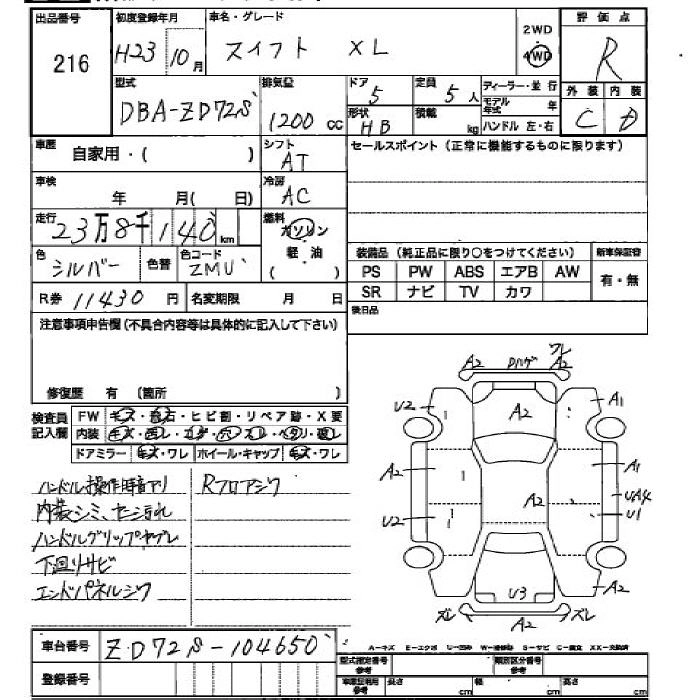 出品番号 初度登録年月 車名・グレード 2WD 評価点
216 H23 10月 スイフト XL 4WD R
型式 排気量 ドア 定員 ディーラー・並行 外装 内装
DBA-ZD72S 1200cc 5 5人 モデル年式 年 C D
形状 HB 積載 kg ハンドル 左・右
車歴 自家用・( ) シフト AT セールスポイント(正常に機能するものに限ります)
車検 年 月( 日) 冷房 AC
走行 23万8千140km 燃料 ガソリン
軽油
( )
色 シルバー 色替 色コード ZMU
装備品(純正品に限り○をつけてください) 新車保証書
PS PW ABS エアB AW 有・無
SR ナビ TV カワ
R券 11430円 名変期限 月 日
後日品
注意事項申告欄(不具合内容等は具体的に記入して下さい)
修復歴 有 〔箇所 〕
検査員記入欄 FW キズ・飛石・ヒビ割・リペア跡・X要
内装
ドアミラー キズ・ワレ ホイール・キャップ キズ・ワレ
ハンドル操作時音アリ Rフロアシワ
内装シミ、
ハンドルグリップヤブレ
下回りサビ
エンドパネルシワ
A2 ワレ A2
U2 A2 A1
A2 A1
A2 UA4
U2 U1
U3 A2
ズレ A2 ズレ
車台番号 ZD72S-104650
登録番号
A-キズ E-エクボ U-凹み W-補修跡 S-サビ C-腐食 XX-交換済
型式指定番号 参考 類別区分番号 参考
車庫証明用 参考 長さ cm 幅 cm 高さ cm